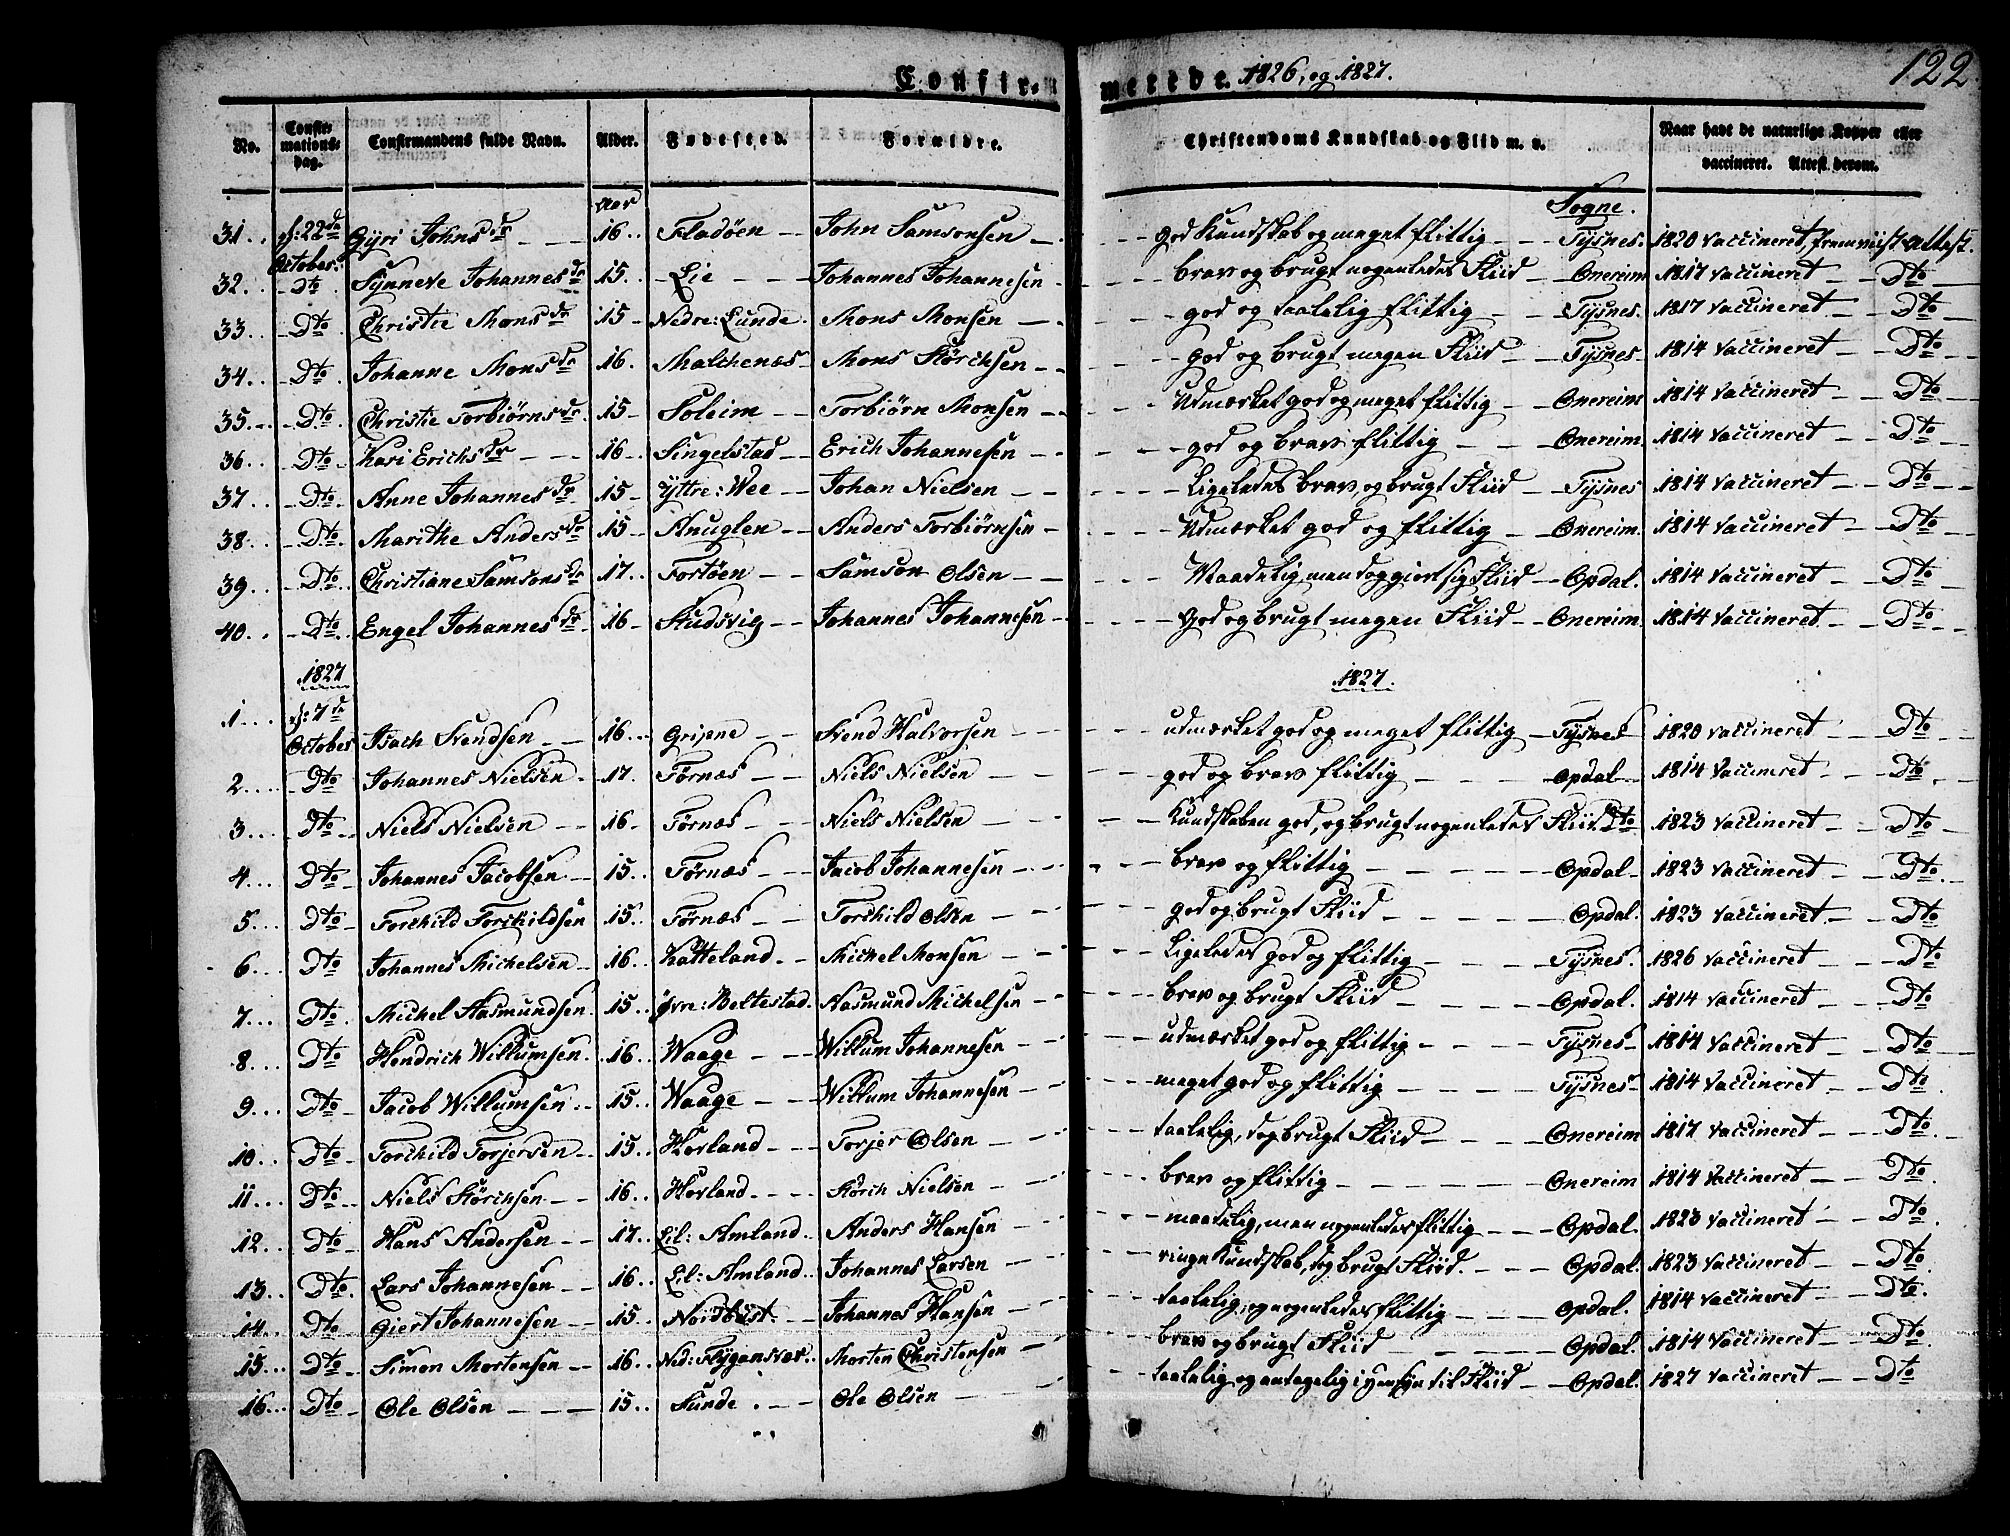 Confir- merede. 1826, og 1827. 122
No. Confirmationsdag. Confirmandens fulde Navn. Alder. Fødested. Forældre. Christendoms Kundskab og Flid m. v. Naar havt de naturlige Kopper eller vaccineret. Attest derom.
Aar Sogne.
31. d: 22de October. Gyri Johnsdr 16. Fladøen John Samsonsen god Kundskab og meget flittig Tysnes. 1820 vaccineret, fremviist Attest.
32. Dto Synneve Johannesdr 15. Lie Johannes Johannesen brav og brugt nogenledes Fliid Onereim 1817 vaccineret Dto
33. Dto Christie Monsdr 15 Nedre: Lunde Mons Monsen god og taalelig flittig Tysnes. 1817 vaccineret Dto
34. Dto Johanne Monsdr 16. Malchenæs Mons Størchsen god og brugt megen Fliid Tysnes 1814 vaccineret Dto
35. Dto Christie Torbiørnsdr 15 Soleim Torbiørn Monsen Udmærket god og meget flittig Onereim 1814 vaccineret Dto
36. Dto Kari Erichsdr 16 Singelstad Erich Johannesen god og brav flittig Onereim 1814 vaccineret Dto
37. Dto Anne Johannesdr 15 Yttre: Wee Johan Nielsen Ligeledes brav, og brugt Fliid Tysnes 1814 vaccineret Dto
38. Dto Marithe Andersdr 15 Anuglen Anders Torbiørnsen Udmærket god og flittig Onereim. 1814 vaccineret Dto
39. Dto Christiane Samsonsdr 17. Fortøen Samson Olsen Maadelig, men dog giort sig Fliid Opdal. 1814 vaccineret Dto
40. Dto Engel Johannesdr 16 Studsvig Johannes Johannesen god og brugt megen Fliid Onereim. 1814 vaccineret Dto
1827 1827.
1. d: 7de October Isach Svendsen 16. Gripne Svend Halvorsen udmærket god og meget flittig Tysnes 1820 vaccineret Dto
2. Dto Johannes Nielsen 17. Tørnæs Niels Nielsen god og brav flittig Opdal 1814 vaccineret Dto
3. Dto Niels Nielsen 16 Tørnæs Niels Nielsen Kundskaben god, og brugt nogenledes Fliid Dto 1823 vaccineret Dto
4. Dto Johannes Jacobsen 15. Tørnæs Jacob Johannesen brav og flittig Opdal 1823 vaccineret Dto
5. Dto Torchild Torchildsen 15. Tørnæs Torchild Olsen god og brugt Fliid Opdal. 1823 vaccineret Dto
6. Dto Johannes Michelsen 16. Katteland Michel Monsen Ligeledes god og flittig Tysnes. 1826 vaccineret Dto
7. Dto Michel Aasmundsen 15. Øvre: Beltestad Aasmund Michelsen brav og brugt Fliid Opdal. 1814 vaccineret Dto
8. Dto Hendrich Willumsen 16. Waage Willum Johannesen udmærket god og flittig Tysnes 1814 vaccineret Dto
9. Dto Jacob Willumsen 15. Waage Willum Johannesen meget god og flittig Tysnes 1814 vaccineret Dto
10. Dto Torchild Torjersen 15. Hovland Torjer Olsen taalelig, dog brugt Fliid Onereim 1817 vaccineret Dto
11. Dto Niels Størchsen 16. Hovland Størch Nielsen brav og flittig Onereim 1814 vaccineret Dto
12. Dto Hans Andersen 17. Lil: Amland Anders Hansen maadelig, men nogenledes flittig Opdal. 1823 vaccineret Dto
13. Dto Lars Johannesen 16. Lil: Amland Johannes Larsen ringe Kundskab, dog brugt Fliid. Opdal. 1823 vaccineret Dto
14. Dto Giert Johannesen 15. Nordbust. Johannes Hansen taalelig, og nogenledes flittig Opdal. 1814 vaccineret Dto.
15. Dto Simon Mortensen 16. Ned: Flygansvær Morten Christensen brav og brugt Fliid Opdal. 1814 vaccineret Dto
16. Dto Ole Olsen 15. Sunde Ole Olsen taalelig og antagelig i Hensyn til Fliid Opdal. 1827 vaccineret Dto